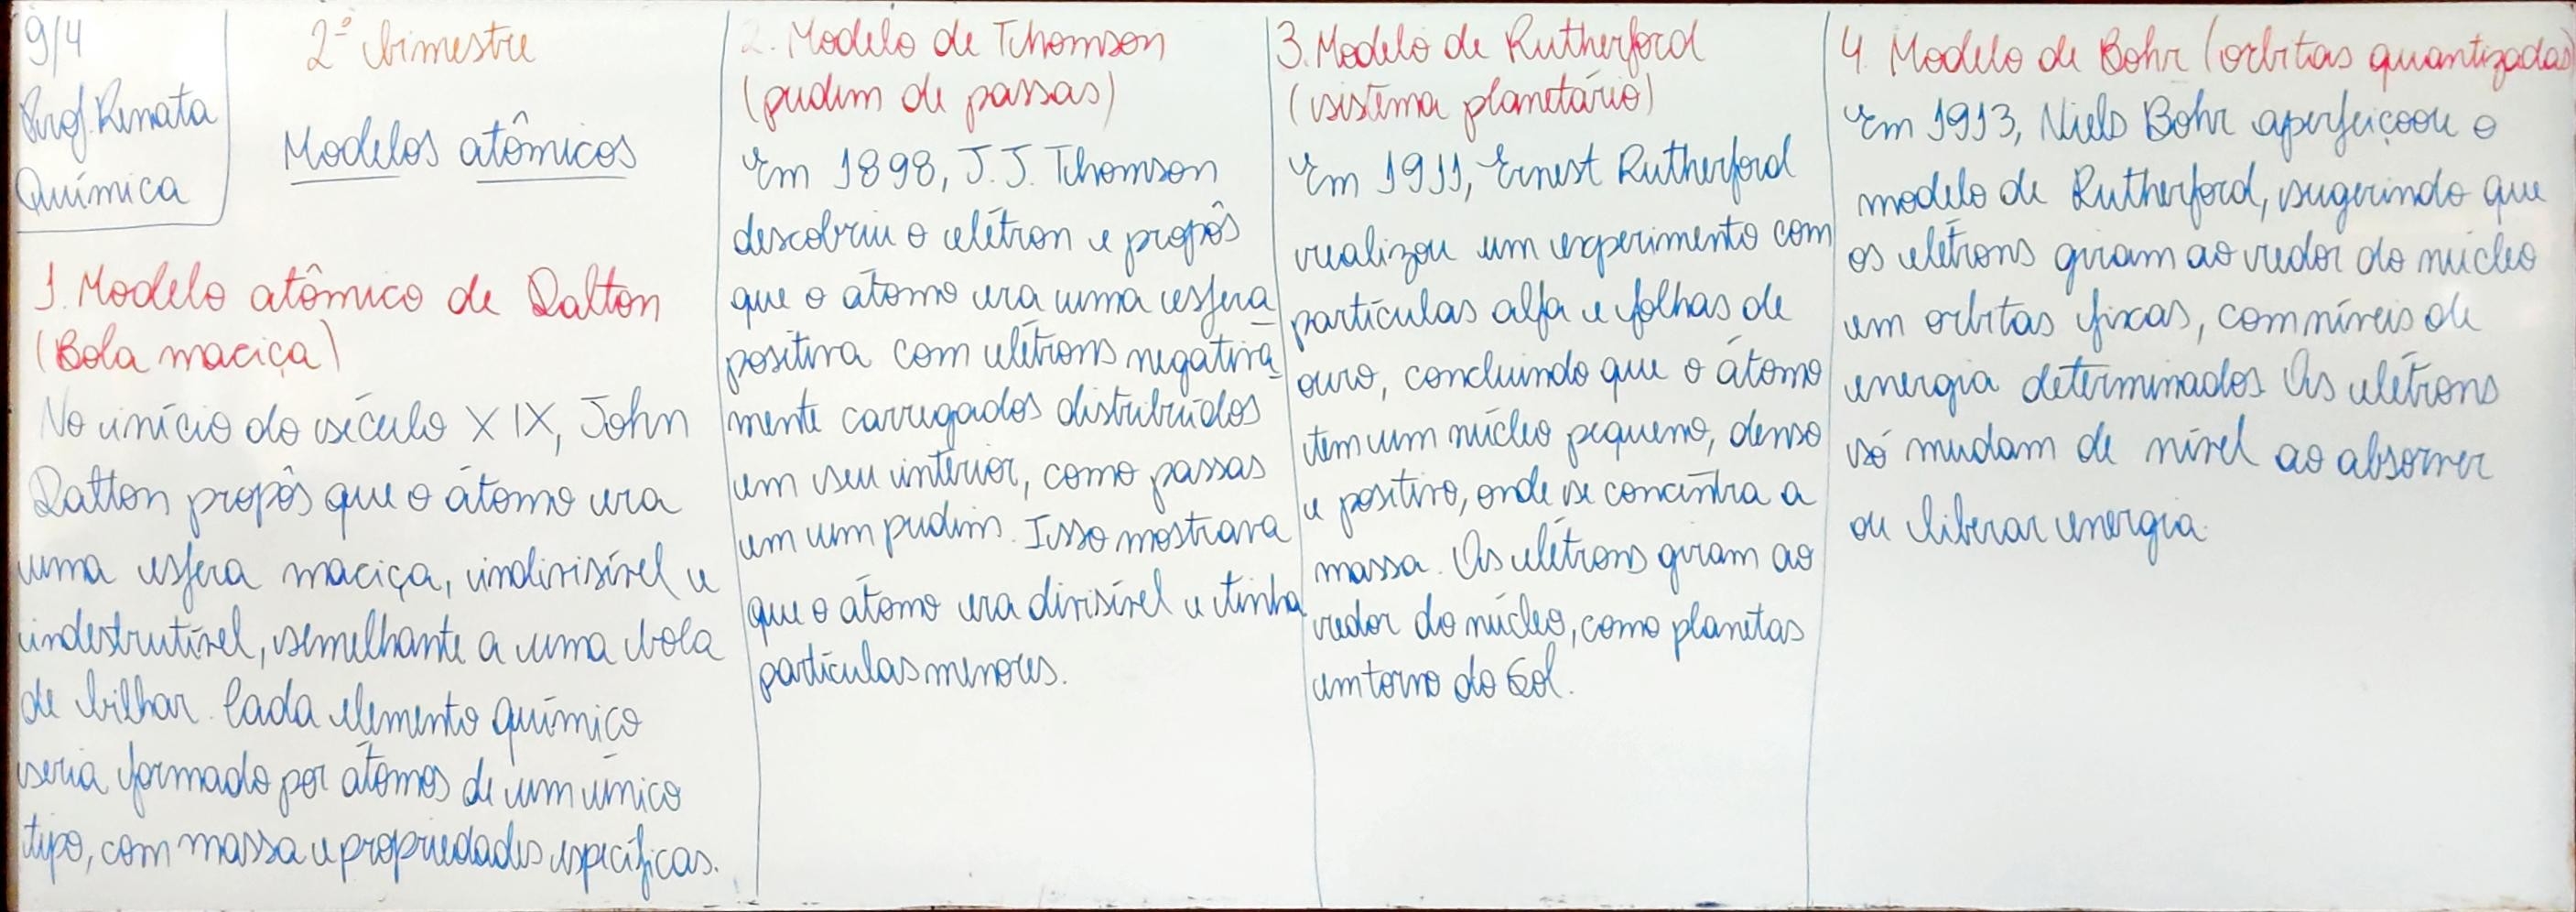 9/4
Prof. Renata
Química
2º bimestre
Modelos atômicos
1. Modelo atômico de Dalton
(Bola maciça)
No início do século XIX, John
Dalton propôs que o átomo era
uma esfera maciça, indivisível e
indestrutível, semelhante a uma bola
de bilhar. Cada elemento químico
seria formado por átomos de um único
tipo, com massa e propriedades específicas.
2. Modelo de Tchomson
(pudim de passas)
Em 1898, J. J. Tchomson
descobriu o elétron e propôs
que o átomo era uma esfera
positiva com elétrons negativa-
mente carregados distribuídos
em seu interior, como passas
em um pudim. Isso mostrava
que o átomo era divisível e tinha
partículas menores.
3. Modelo de Rutherford
(sistema planetário)
Em 1911, Ernest Rutherford
realizou um experimento com
partículas alfa e folhas de
ouro, concluindo que o átomo
tem um núcleo pequeno, denso
e positivo, onde se concentra a
massa. Os elétrons giram ao
redor do núcleo, como planetas
em torno do Sol.
4. Modelo de Bohr (orbitas quantizadas)
Em 1913, Niels Bohr aperfeiçoou o
modelo de Rutherford, sugerindo que
os elétrons giram ao redor do núcleo
em orbitas fixas, com níveis de
energia determinados. Os elétrons
só mudam de nível ao absorver
ou liberar energia.